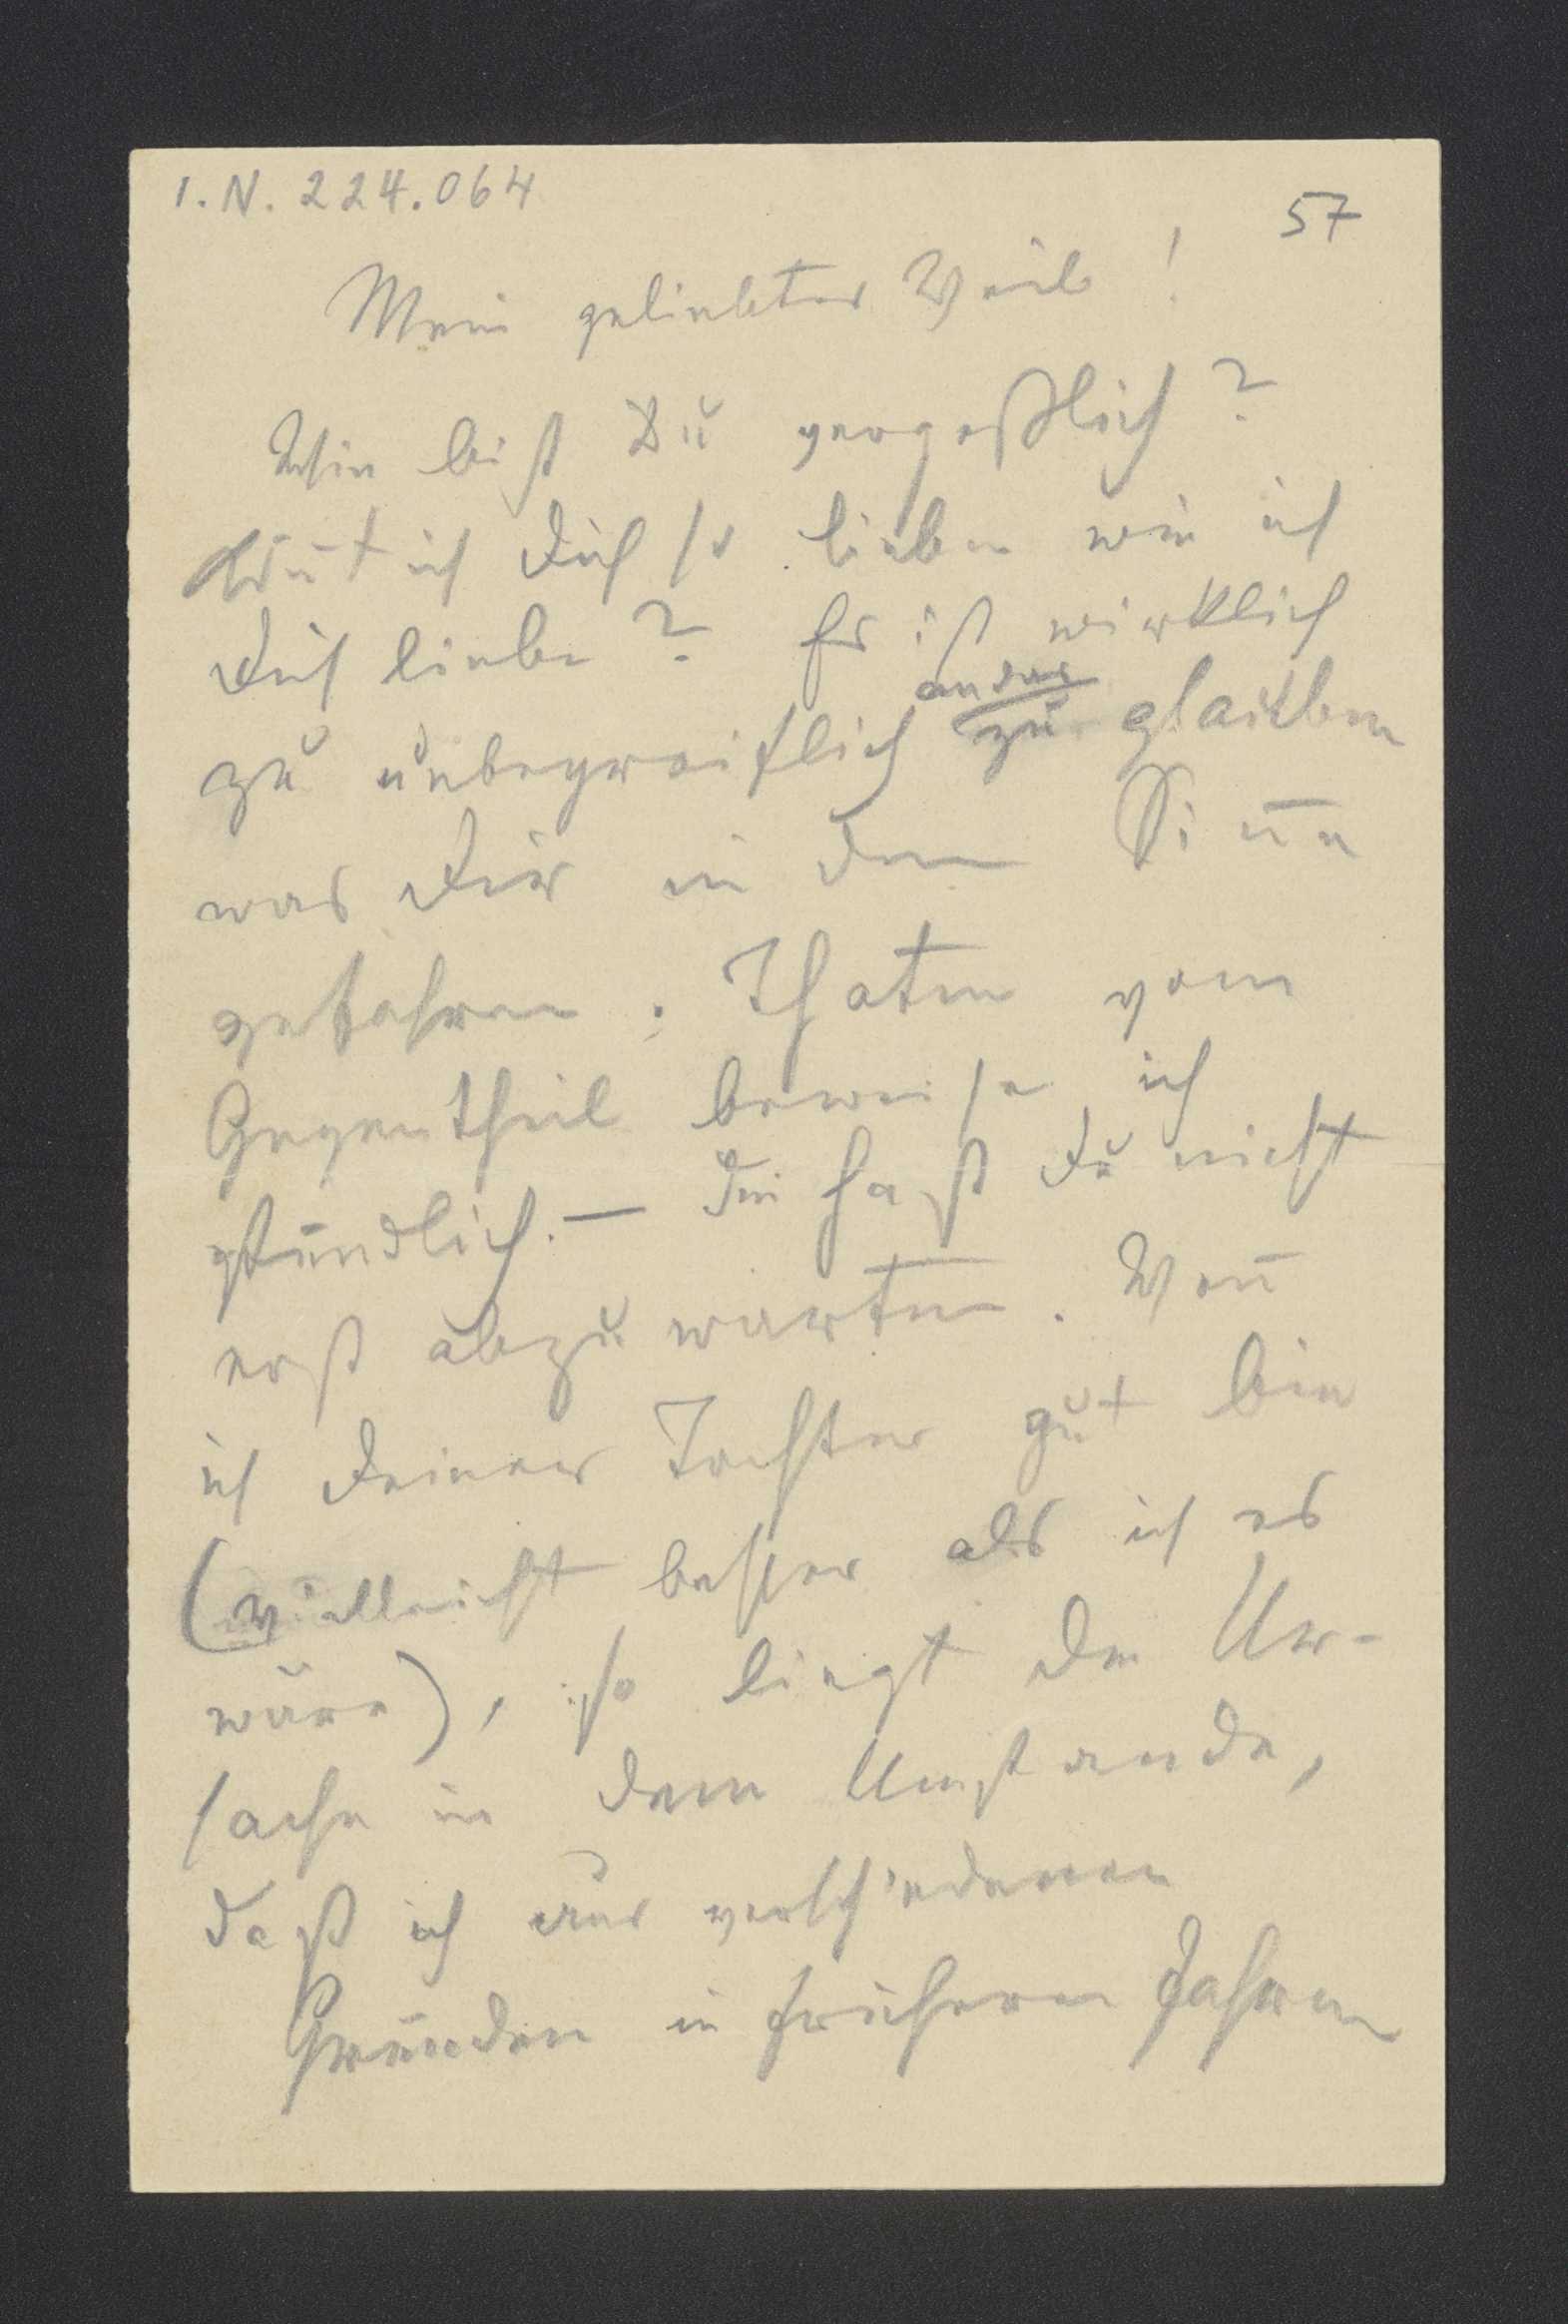 I.N. 224.064
57
Mein geliebtes Weib!
Wie bist Du vergeßlich?
ich Dich so lieben wie ich
Dich liebe? Es ist wirklich
andres
zu unbegreiflich zu glauben
was Dir in den Sinn
gefahren. Thaten vom
Gegentheil beweise ich
stündlich. – die hast Du nicht
erst abzuwarten. Weñ
ich Deiner Tochter gut bin
(vielleicht besser als ich es
wäre), so liegt die Ur-
sache in dem Umstande,
daß ich aus verschiedenen
Gründen in früheren Jahren